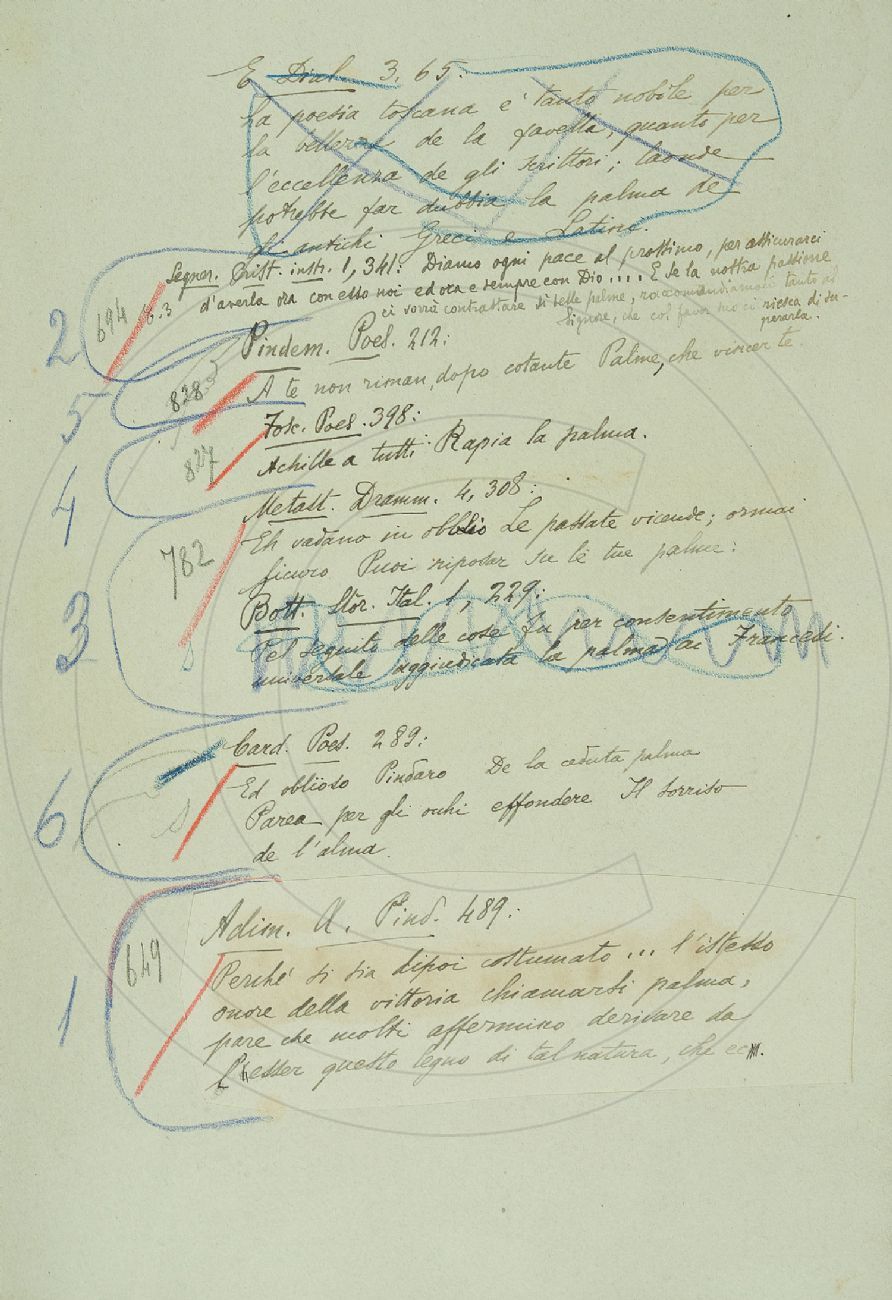 E Dial. 3, 65:
La poesia toscana è tanto nobile per
la bellezza de la favella, quanto per
l'eccellenza de gli scrittori; laonde
potrebbe far dubbia la palma de
gli antichi Greci e Latini.
Segner. Crist. instr. 1, 341: Diamo ogni pace al prossimo, per assicurarci
d'averla ora con esso noi ed ora e sempre con Dio.... E se la nostra passione
ci vorrà contrastare sì belle palme, raccomandiamoci tanto al
Signore, che col favor suo ci riesca di su-
perarla.
2
694
6.3
Pindem. Poes. 212:
A te non riman, dopo cotante Palme, che vincer te
5
828
Fosc. Poes. 398:
Achille a tutti Rapia la palma.
4
827
Metast. Dramm. 4, 308:
Eh vadano in oblio Le passate vicende; ormai
sicuro Puoi riposar su le tue palme:
3
782
Bott. Stor. Ital. 1, 229:
Pel seguito delle cose fu per consentimento
universale aggiudicata la palma ai Francesi.
Card. Poes. 289:
Ed oblioso Pindaro De la ceduta palma
Parea per gli occhi effondere Il sorriso
de l'alma.
6
Adim. A. Pind. 489:
Perché si sia dipoi costumato ... l'istesso
onore della vittoria chiamarsi palma,
pare che molti affermino derivare da
l'esser questo legno di tal natura, che ec.
1
649